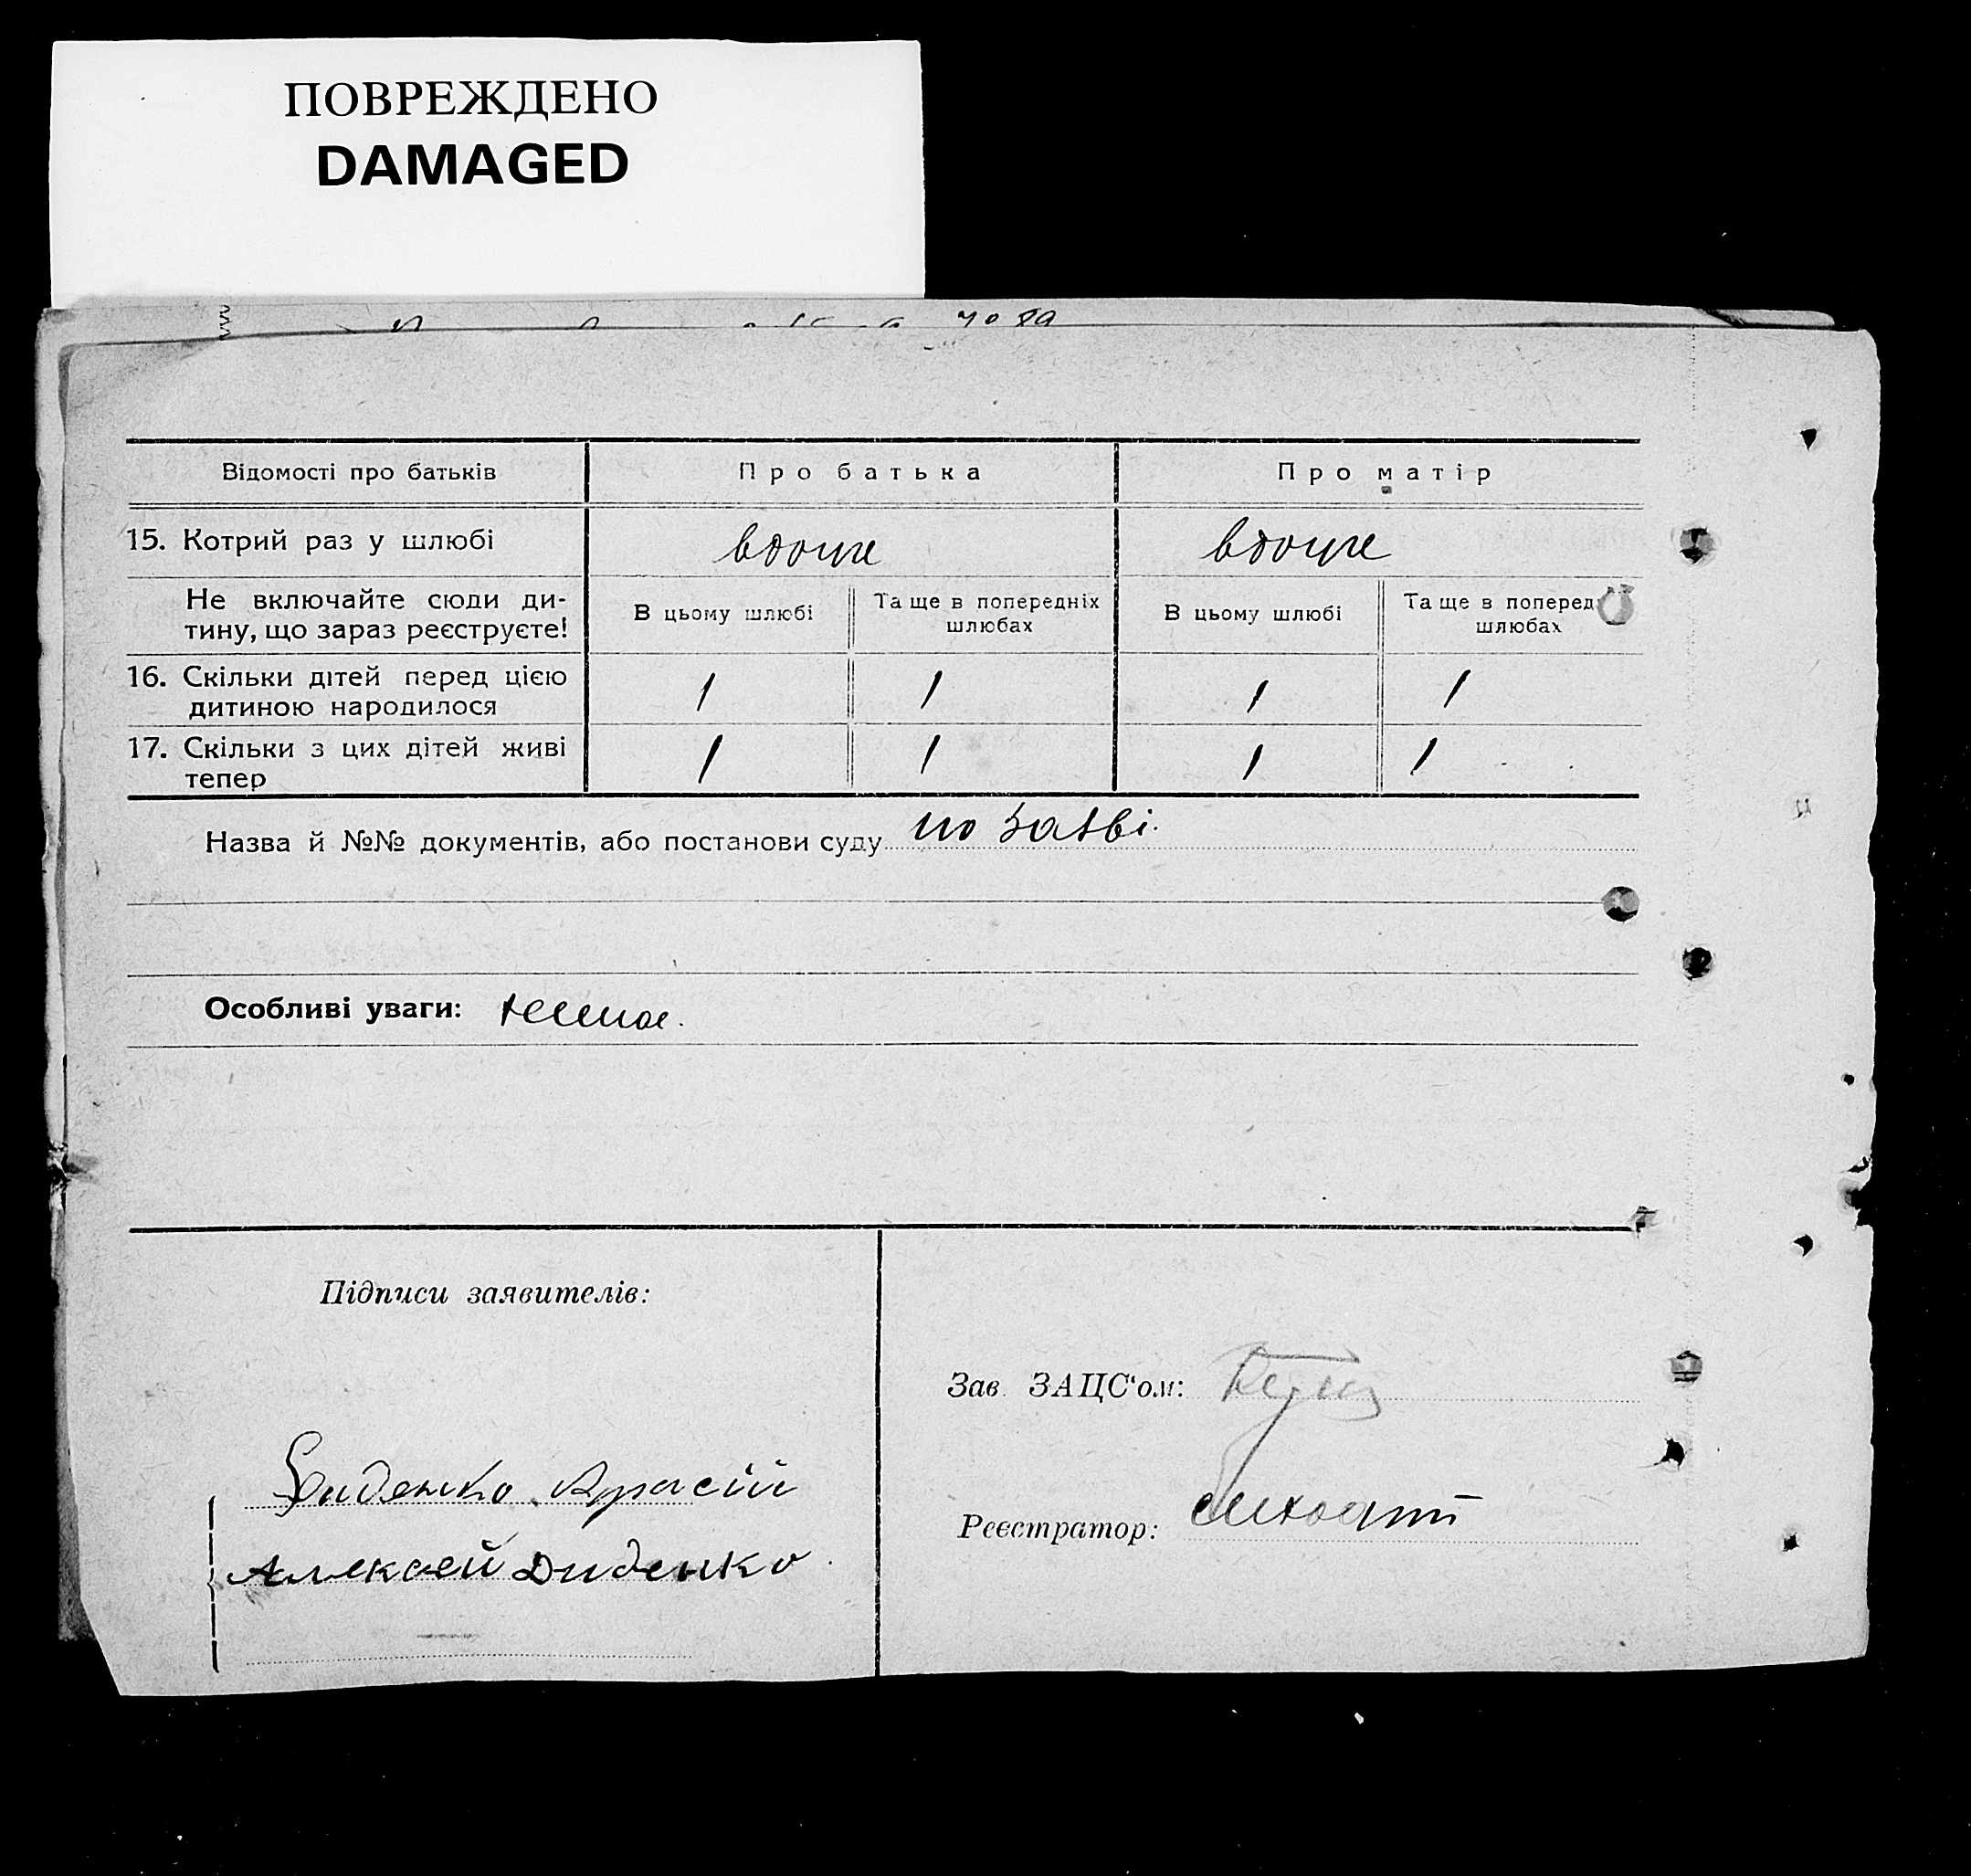 ПОВРЕЖДЕНО
DAMAGED
Відомості про батьків
Про батька
Про матір
15. Котрий раз у шлюбі
вдоуге
вдоуге
Не включайте сюди ди-
тину, що зараз реєструєте!
В цьому шлюбі
Та ще в попередніх
шлюбах
В цьому шлюбі
Та ще в поперед
шлюбах
16. Скільки дітей перед цією
дитиною народилося
1
1
1
1
17. Скільки з цих дітей живі
тепер
1
1
1
1
Назва й №№ документів, або постанови суду по заяві.
Особливі уваги: нема.
Підписи заявителів:
Диденко
Алексей Диденко
Зав. ЗАЦС'ом:
Реєстратор: